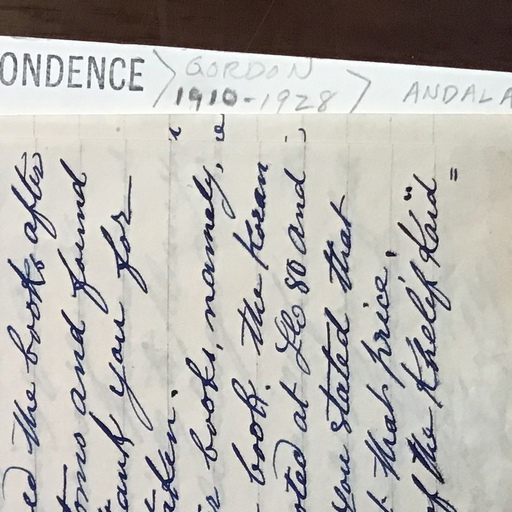 the books after
and found
you for
taken.
books, namely,
book. the Koran
at 80 and
you stated that
that price.
of the Khelif Kaïd
ONDENCE
GORDON
1910-1928
ANDALA